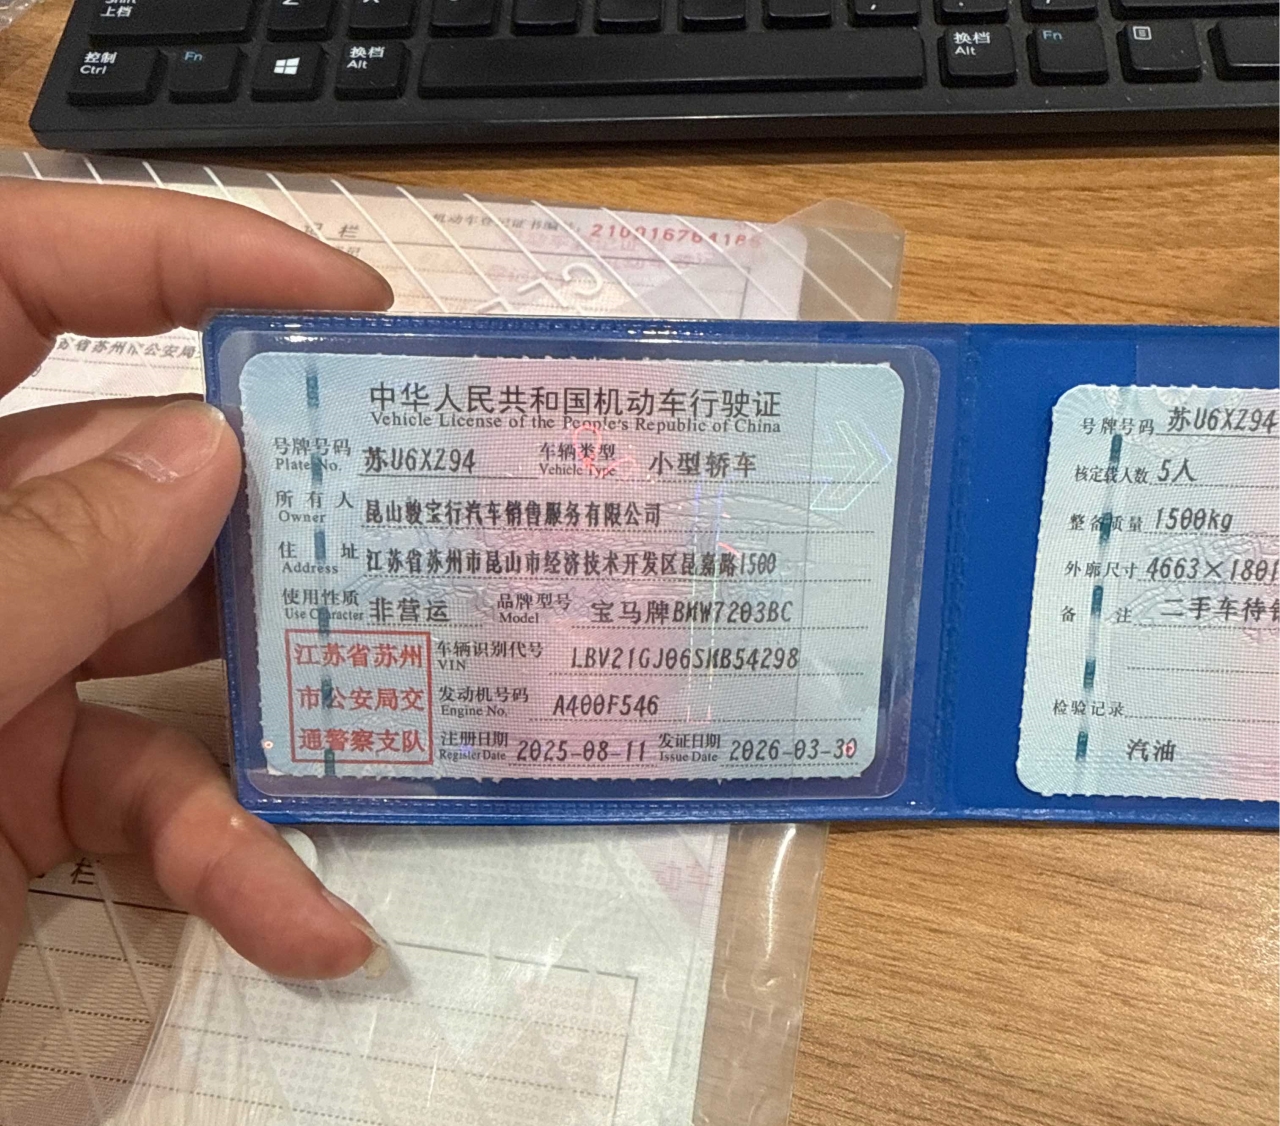 上档
控制
Ctrl
Fn
换档
Alt
换档
Alt
Fn
机动车登记证书编号:
省苏州市公安局
中华人民共和国机动车行驶证
Vehicle License of the People's Republic of China
号牌号码 苏U6XZ94 车辆类型 小型轿车
Plate No. Vehicle Type
所有人 昆山骏宝行汽车销售服务有限公司
Owner
住址 江苏省苏州市昆山市经济技术开发区昆嘉路1500
Address
使用性质 非营运 品牌型号 宝马牌BMW7203BC
Use Character Model
江苏省苏州
市公安局交
通警察支队
车辆识别代号 LBV21GJ06SMB54298
VIN
发动机号码 A400F546
Engine No.
注册日期 2025-08-11 发证日期 2026-03-30
Register Date Issue Date
号牌号码 苏U6XZ94
核定载人数 5人
整备质量 1500kg
外廓尺寸 4663×1801
备注 二手车待
检验记录
汽油
栏
动车